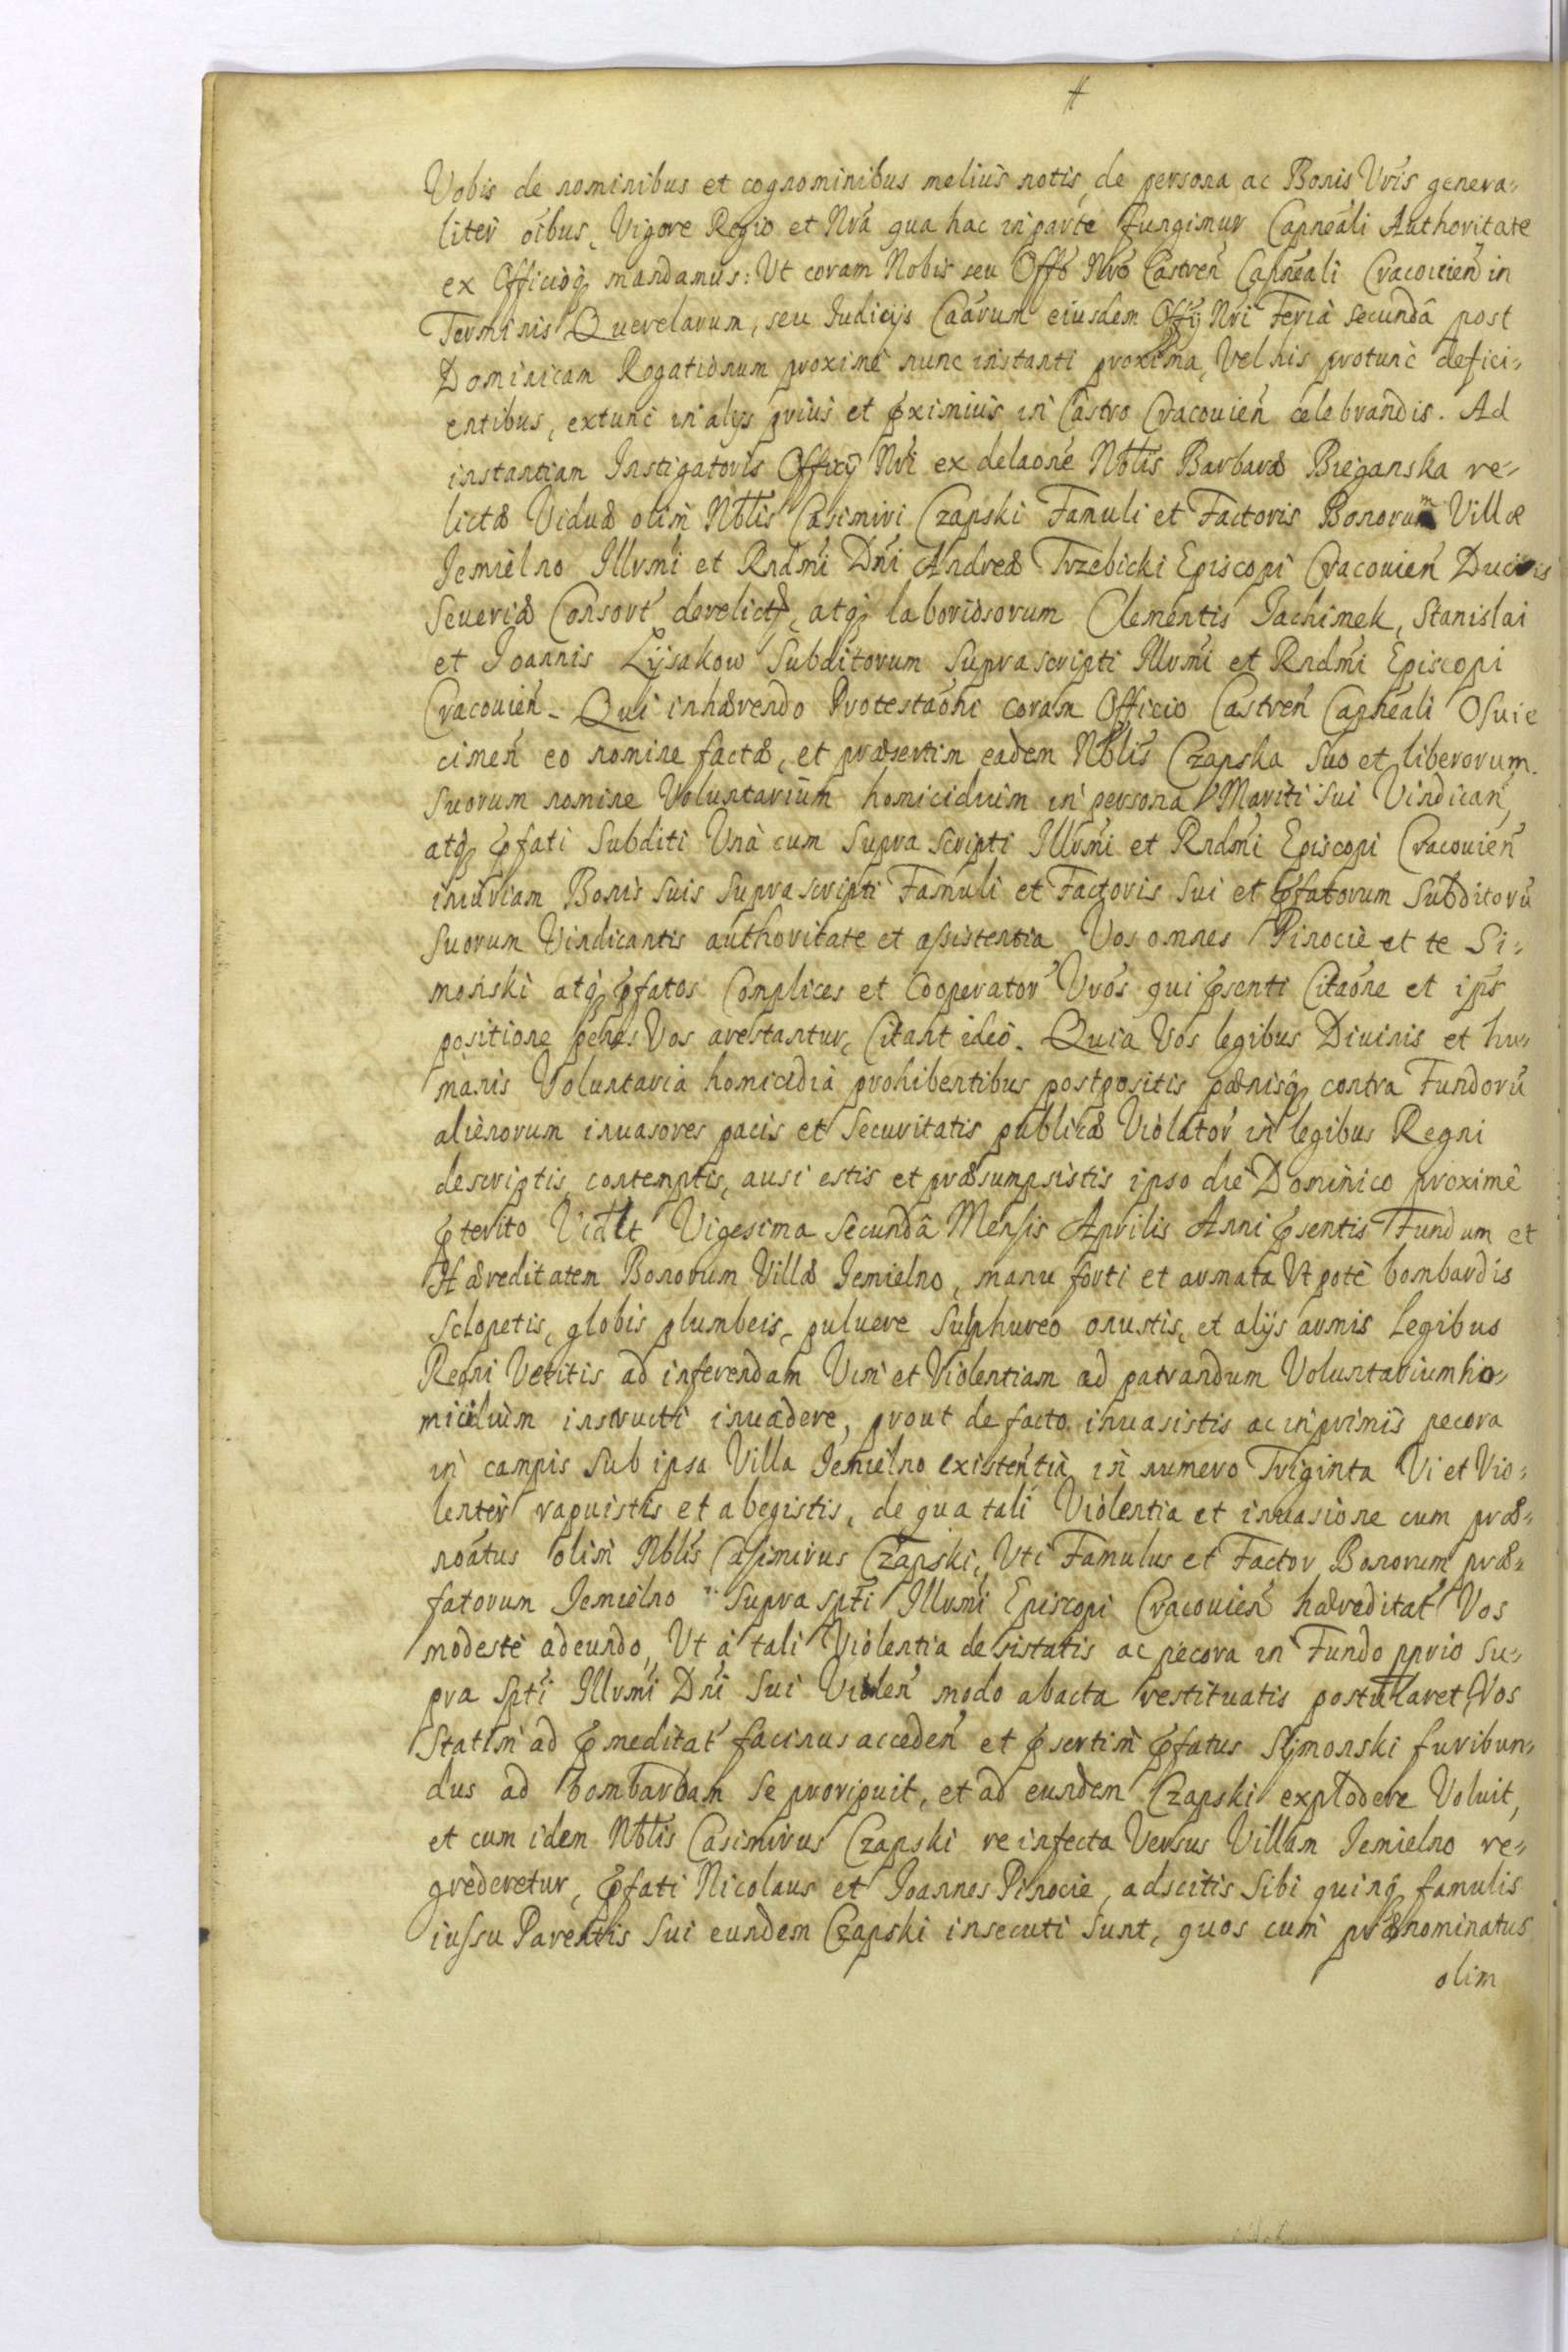 #
Vobis de nominibus et cognominibus melius notis, de persona ac Bonis Vris genera-
liter oibus, Vigore Regio et Nra qua hac in parte fungimur Capneali Authoritate
ex Officioq mandamus: Vt coram Nobis seu Offo Nro Castren Capneali Cracouien in
Terminis Querelarum, seu Iudicijs Caarum eiusdem Offij Nri Feria secunda post
Dominicam Rogationum proxime nunc instanti proxima, Vel his protunc defici-
entibus, extunc in alijs prius et pximius in Castro Cracouien celebrandis. Ad
instantiam Instigatoris Officij Nri ex delaone Nblis Barbaræ Bieganska re-
lictæ Viduæ olim Nblis Casimiri Czapski Famuli et Factoris Bonorum Villæ
Jemielno Illrmi et Rndmi Dni Andreæ Trzebicki Episcopi Cracouien Ducis
Seueriæ Consort derelictæ, atq laboriosorum Clementis Jachimek, Stanislai
et Joannis Lysakow Subditorum suprascripti Illrmi et Rndmi Episcopi
Cracouien. Qui inhærendo Protestaoni coram Officio Castren Capneali Osuie
cimen eo nomine factæ, et præsertim eadem Nblis Czapska suo et liberorum
suorum nomine Voluntarium homicidium in persona Mariti sui Vindican,
atq pfati Subditi Vna cum supra scripti Illrmi et Rndmi Episcopi Cracouien
iniuriam Bonis suis suprascripti Famuli et Factoris sui et pfatorum Subditoru
suorum Vindicantis authoritate et assistentia Vos omnes Pinocie et te Si-
monski atq pfatos Complices et Cooperator Vros qui psenti Citaone et ipsr
positione penes Vos arestantur, Citant ideo. Quia Vos legibus Diuinis et hu-
manis Voluntaria homicidia prohibentibus postpositis pænisq contra Fundoru
alienorum inuasores pacis et securitatis publicæ Violator in legibus Regni
descriptis contemptis, ausi estis et præsumpsistis ipso die Dominico proxime
pterito Vidlt Vigesima secunda Mensis Aprilis Anni psentis Fundum et
Hæreditatem Bonorum Villæ Jemielno, manu forti et armata Vt pote bombardis
Sclopetis, globis plumbeis, puluere sulphureo onustis, et alijs armis Legibus
Regni Vetitis ad inferendam Vim et Violentiam ad patrandum Voluntarium ho-
micidium instructi inuadere, prout de facto inuasistis ac inprimis pecora
in campis sub ipsa Villa Jemielno existentia in numero Triginta Vi et Vio-
lenter rapuistis et abegistis, de qua tali Violentia et inuasione cum præ-
noatus olim Nblis Casimirus Czapski, Vti Famulus et Factor Bonorum præ-
fatorum Jemielno supra spti Illrmi Episcopi Cracouien hæreditat Vos
modeste adeundo, Vt a tali Violentia desistatis ac pecora in Fundo pprio su-
pra spti Illrmi Dni sui Violen modo abacta restituatis postularet, Vos
statim ad pmeditat facinus acceden et psertim pfatus Symonski furibun-
dus ad bombardam se proripuit, et ad eundem Czapski explodere Voluit,
et cum idem Nblis Casimirus Czapski re infecta Versus Villam Jemielno re-
grederetur, pfati Nicolaus et Joannes Pinocie, adscitis sibi quinq famulis
iussu Parentis sui eundem Czapski insecuti sunt, quos cum prænominatus
olim